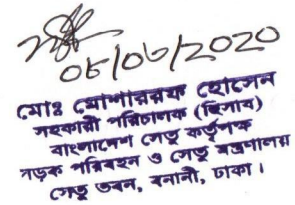 ০৮/০৬/2020
মোঃ মোশাররফ হোসেন
সহকারী পরিচালক (হিসাব)
বাংলাদেশ সেতু কর্তৃপক্ষ
সড়ক পরিবহন ও সেতু মন্ত্রণালয়
সেতু ভবন, বনানী, ঢাকা।